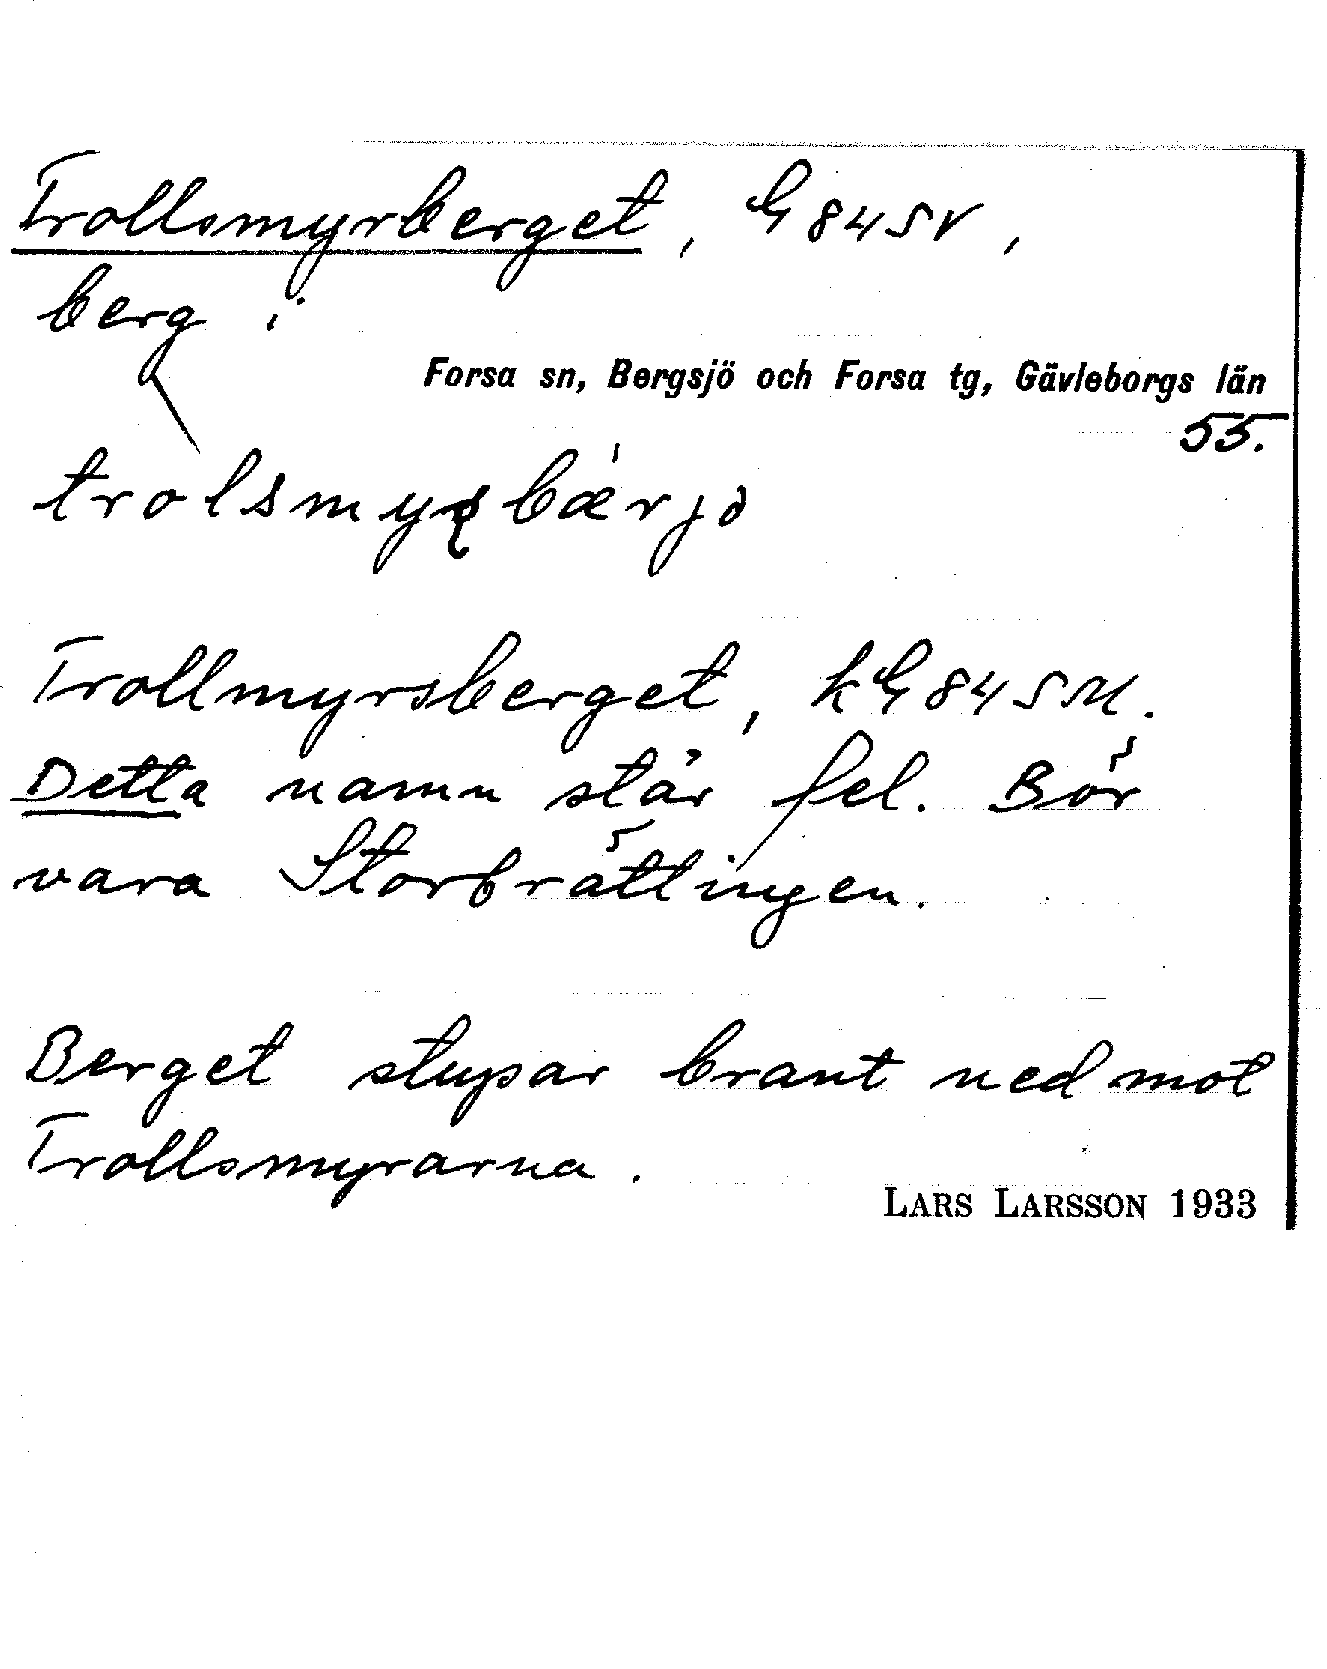 Trollsmyrberget, G84SV,
berg i
Forsa sn, Bergsjö och Forsa tg, Gävleborgs län
55.
Trollmyrsberget, kG84SM.
Detta namn står fel. Bör
vara Storbrättingen.
Berget stupar brant ned mot
Trollsmyrarna.
LARS LARSSON 1933